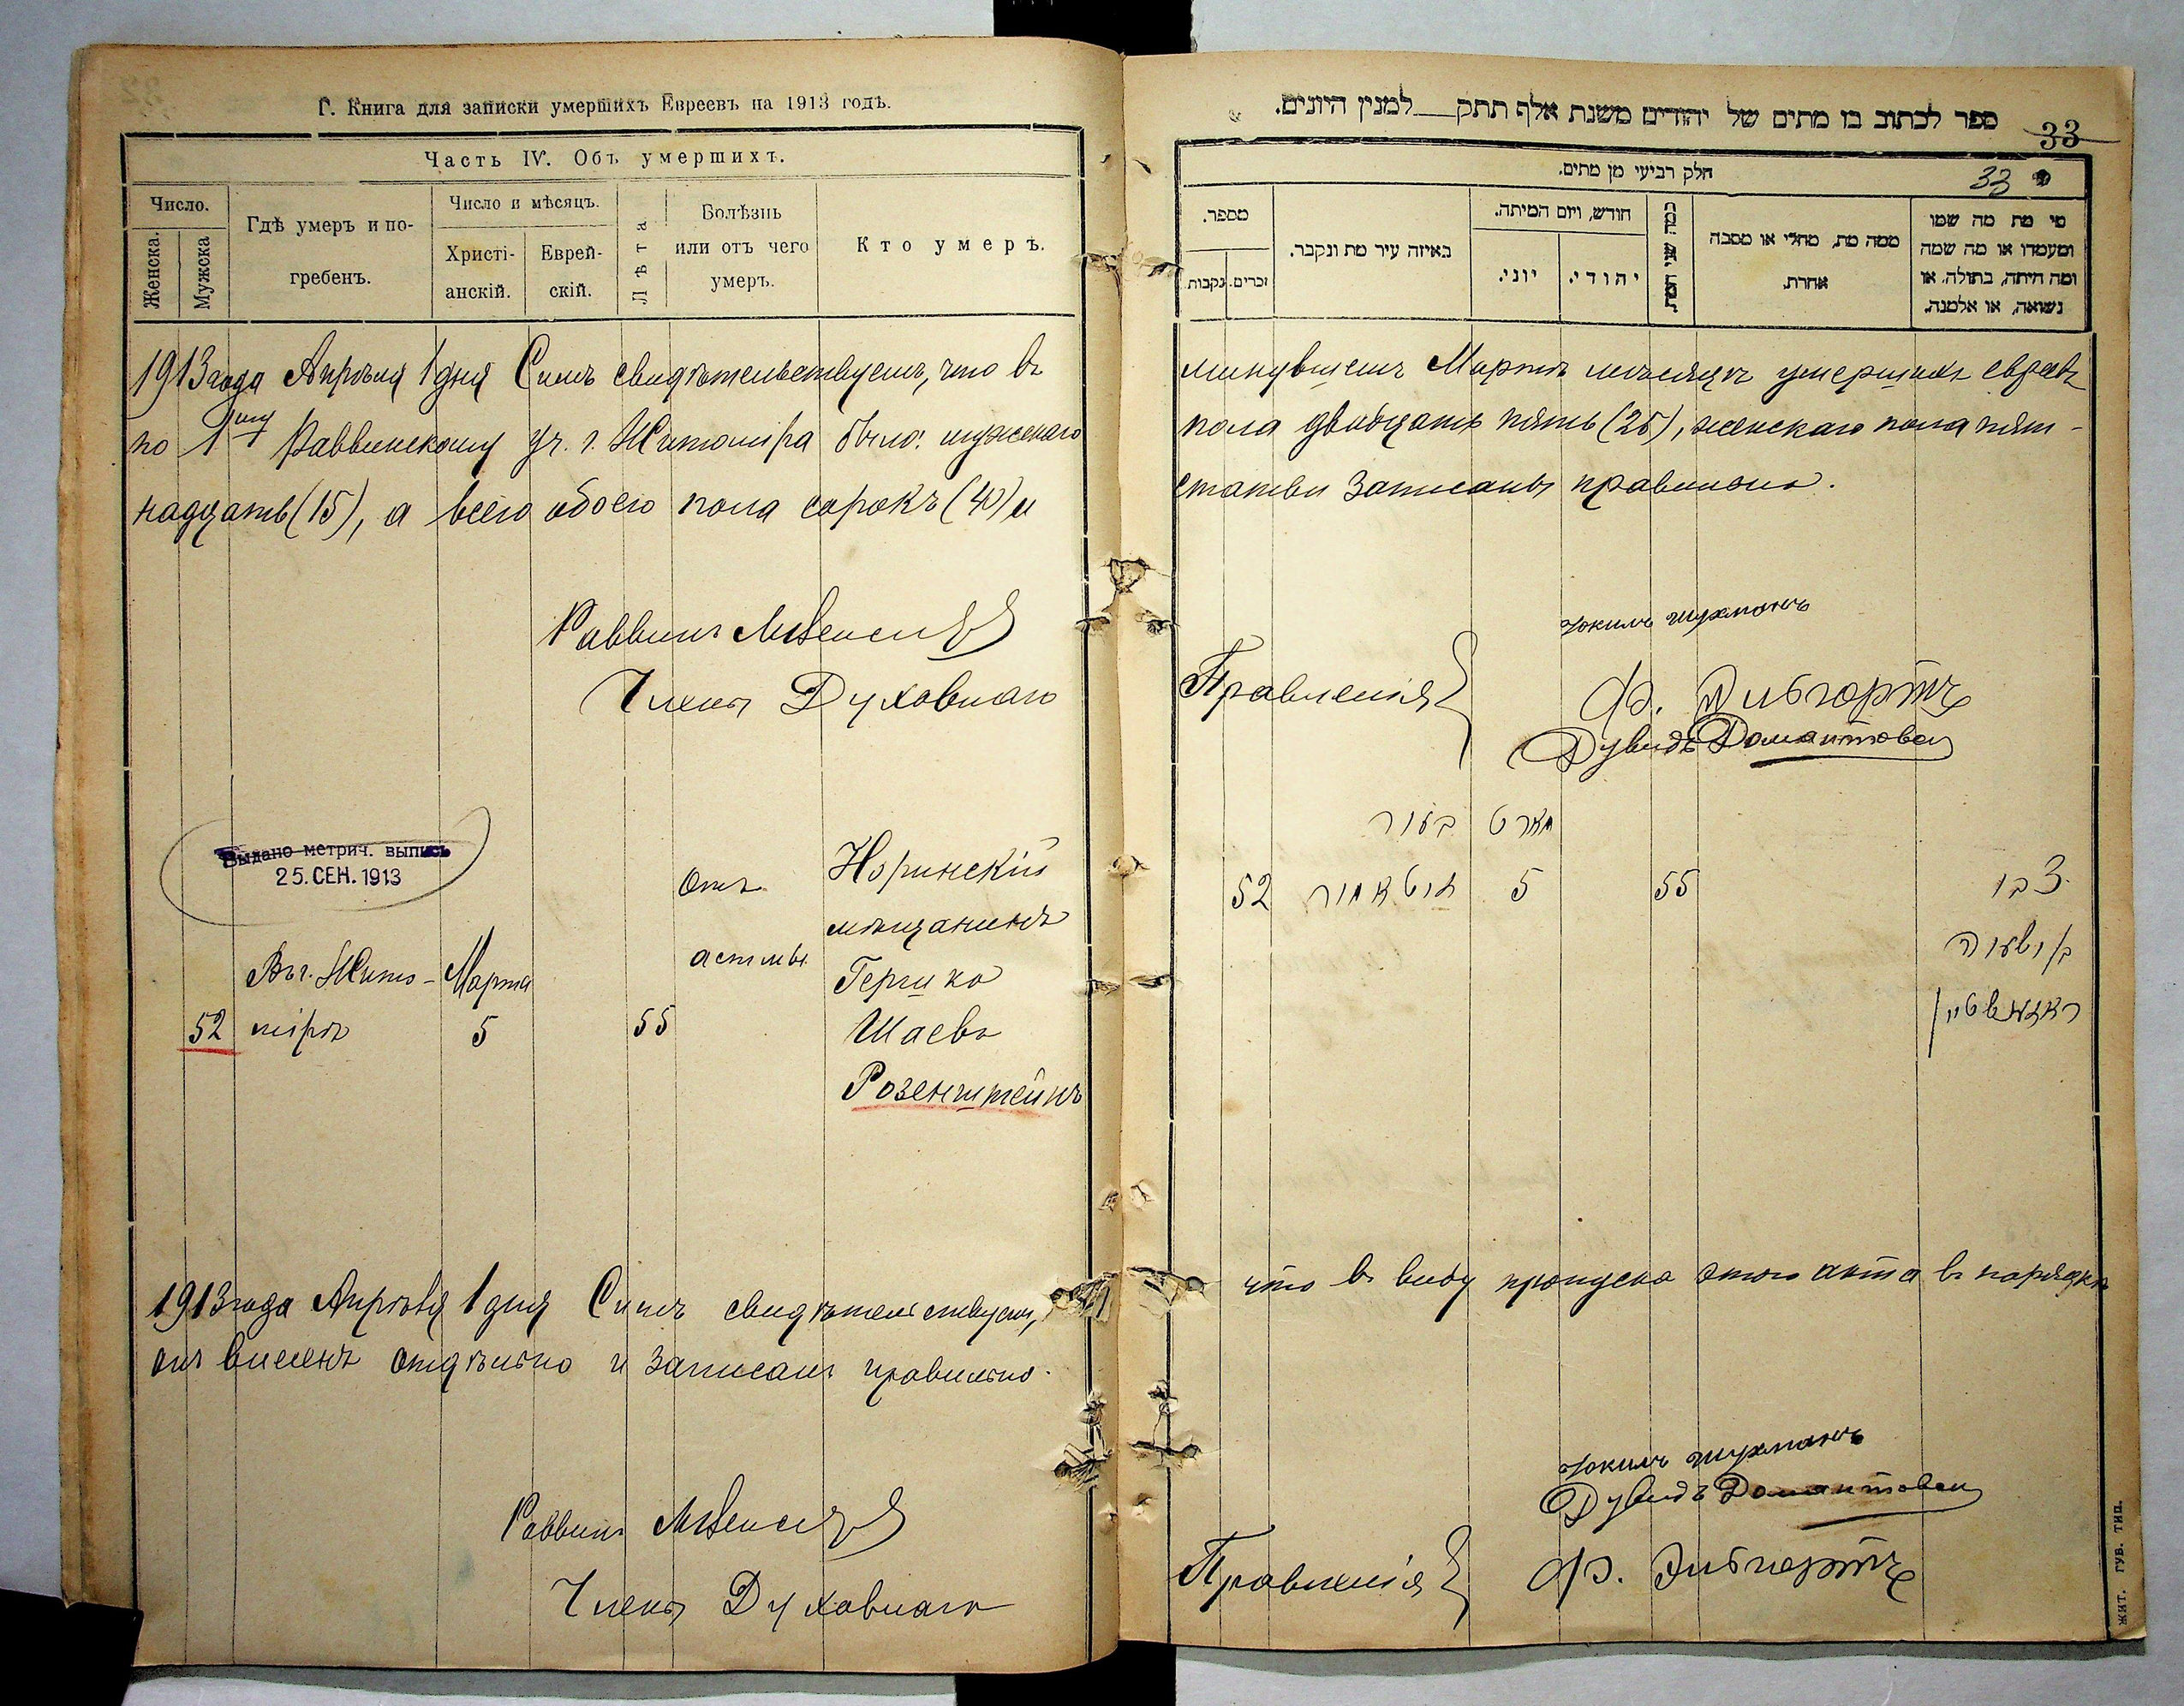 Г. Книга для записки умершихъ Евреевъ на 1913 годъ.
Часть IV. Объ умершихъ.
Число.
Женска.
Мужска
Гдѣ умеръ и по-
гребенъ.
Число и мѣсяцъ.
Христі-
анскій.
Еврей-
скій.
Лѣта
Болѣзнь
или отъ чего
умеръ.
Кто умеръ.
1913 года Апрѣля 1 дня Симъ свидѣтельствуемъ, что въ
по 1му Раввинскому уч. г. Житоміра было: мужскаго
надцать (15), а всего обоего пола сорокъ (40) и
Раввинъ
Члены Духовнаго
Выдано метрич. выпись
25. СЕН. 1913
52
Въ г. Жито-
мірѣ
Марта
5
55
отъ
астмы
Норинскій
мѣщанинъ
Гершко
Шаевъ
Розенштейнъ
1913 года Апрѣля 1 дня Симъ свидѣтельствуемъ,
онъ внесенъ отдѣльно и записанъ правильно.
Раввинъ
Члены Духовнаго
ספר לכתוב בו מתים של יהודים משנת אלף תתק למנין היונים.
33
חלק רביעי מן מתים.
33
מספר.
זכרים.
נקבות
באיזה עיר מת ונקבר.
חודש, ויום המיתה.
יוני.
יהודי.
כמה שני המת
ממה מת, מחלי או מסבה
אחרת.
מי מת מה שמו
ומעמדו או מה שמה
ומה היתה, בתולה, או
נשואה, או אלמנה.
минувшемъ Мартѣ мѣсяцѣ умершихъ евреевъ
пола двадцать пять (25), женскаго пола пят-
статьи записаны правильно.
Правленія
Дувидъ
מארט
52
5
55
צבי
בן ישעיה
что въ виду пропуска этого акта въ порядкѣ
Дувидъ
Правленія
ЖИТ. ГУБ. ТИП.